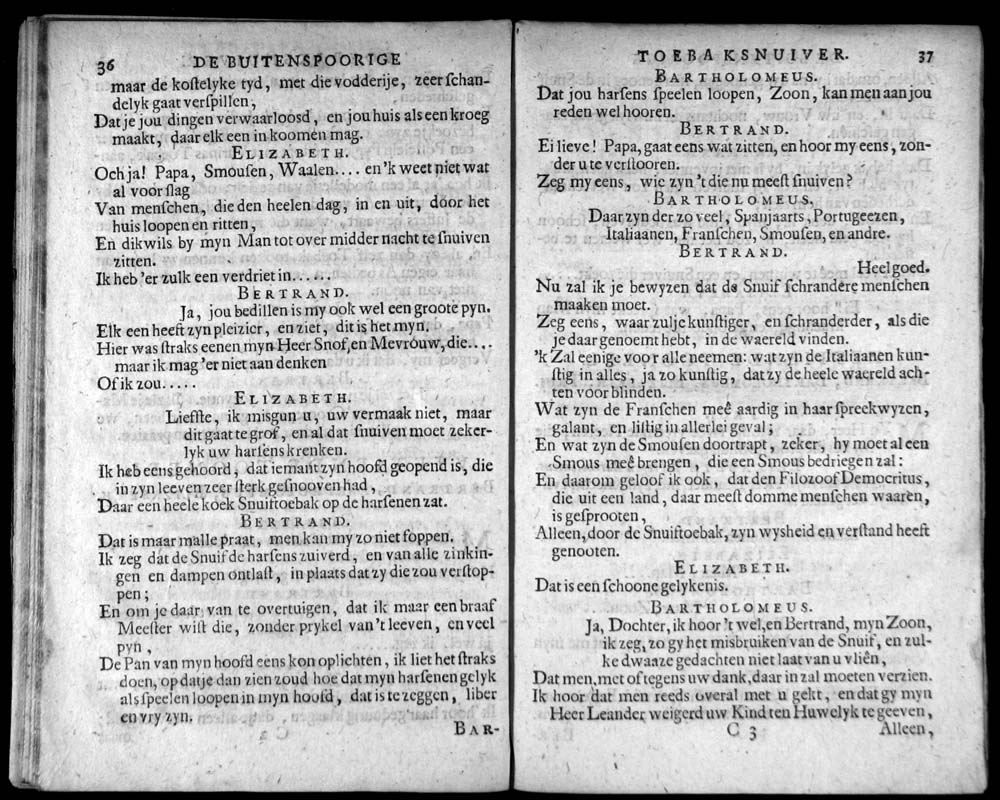 36 DE BUITENSPOORIGE
maar de kostelyke tyd, met die vodderije, zeer schan-
delyk gaat verspillen,
Dat je jou dingen verwaarloosd, en jou huis als een kroeg
maakt, daar elk een in koomen mag.
ELIZABETH.
Och ja! Papa, Smousen, Waalen.... en 'k weet niet wat
al voor slag
Van menschen, die den heelen dag, in en uit, door het
huis loopen en ritten,
En dikwils by myn Man tot over midder nacht te snuiven
zitten.
Ik heb 'er zulk een verdriet in......
BERTRAND.
Ja, jou bedillen is my ook wel een groote pyn.
Elk een heeft zyn pleizier, en ziet, dit is het myn.
Hier was straks eenen myn Heer Snof, en Mevrouw, die....
maar ik mag 'er niet aan denken
Of ik zou.....
ELIZABETH.
Liefste, ik misgun u, uw vermaak niet, maar
dit gaat te grof, en al dat snuiven moet zeker-
lyk uw harsens krenken.
Ik heb eens gehoord, dat iemant zyn hoofd geopend is, die
in zyn leeven zeer sterk gesnooven had,
Daar een heele koek Snuiftoebak op de harsenen zat.
BERTRAND.
Dat is maar malle praat, men kan my zo niet foppen.
Ik zeg dat de Snuif de harsens zuiverd, en van alle zinkin-
gen en dampen ontlast, in plaats dat zy die zou verstop-
pen;
En om je daar van te overtuigen, dat ik maar een braaf
Meester wist die, zonder prykel van 't leeven, en veel
pyn,
De Pan van myn hoofd eens kon oplichten, ik liet het straks
doen, op datje dan zien zoud hoe dat myn harsenen gelyk
als speelen loopen in myn hoofd, dat is te zeggen, liber
en vry zyn.
BAR-
TOEBAKSNUIVER. 37
BARTHOLOMEUS.
Dat jou harsens speelen loopen, Zoon, kan men aan jou
reden wel hooren.
BERTRAND.
Ei lieve! Papa, gaat eens wat zitten, en hoor my eens, zon-
der u te verstooren.
Zeg my eens, wie zyn 't die nu meest snuiven?
BARTHOLOMEUS.
Daar zyn der zo veel, Spanjaarts, Portugeezen,
Italiaanen, Franschen, Smousen, en andre.
BERTRAND.
Heel goed.
Nu zal ik je bewyzen dat de Snuif schrandere menschen
maaken moet.
Zeg eens, waar zulje kunstiger, en schranderder, als die
je daar genoemt hebt, in de waereld vinden.
'k Zal eenige voor alle neemen: wat zyn de Italiaanen kun-
stig in alles, ja zo kunstig, dat zy de heele waereld ach-
ten voor blinden.
Wat zyn de Franschen meê aardig in haar spreekwyzen,
galant, en listig in allerlei geval;
En wat zyn de Smousen doortrapt, zeker, hy moet al een
Smous meê brengen, die een Smous bedriegen zal:
En daarom geloof ik ook, dat den Filozoof Democritus,
die uit een land, daar meest domme menschen waaren,
is gesprooten,
Alleen, door de Snuiftoebak, zyn wysheid en verstand heeft
genooten.
ELIZABETH.
Dat is een schoone gelykenis.
BARTHOLOMEUS.
Ja, Dochter, ik hoor 't wel, en Bertrand, myn Zoon,
ik zeg, zo gy het misbruiken van de Snuif, en zul-
ke dwaaze gedachten niet laat van u vliên,
Dat men, met of tegens uw dank, daar in zal moeten verzien.
Ik hoor dat men reeds overal met u gekt, en dat gy myn
Heer Leander weigerd uw Kind ten Huwelyk te geeven,
C 3 Alleen,